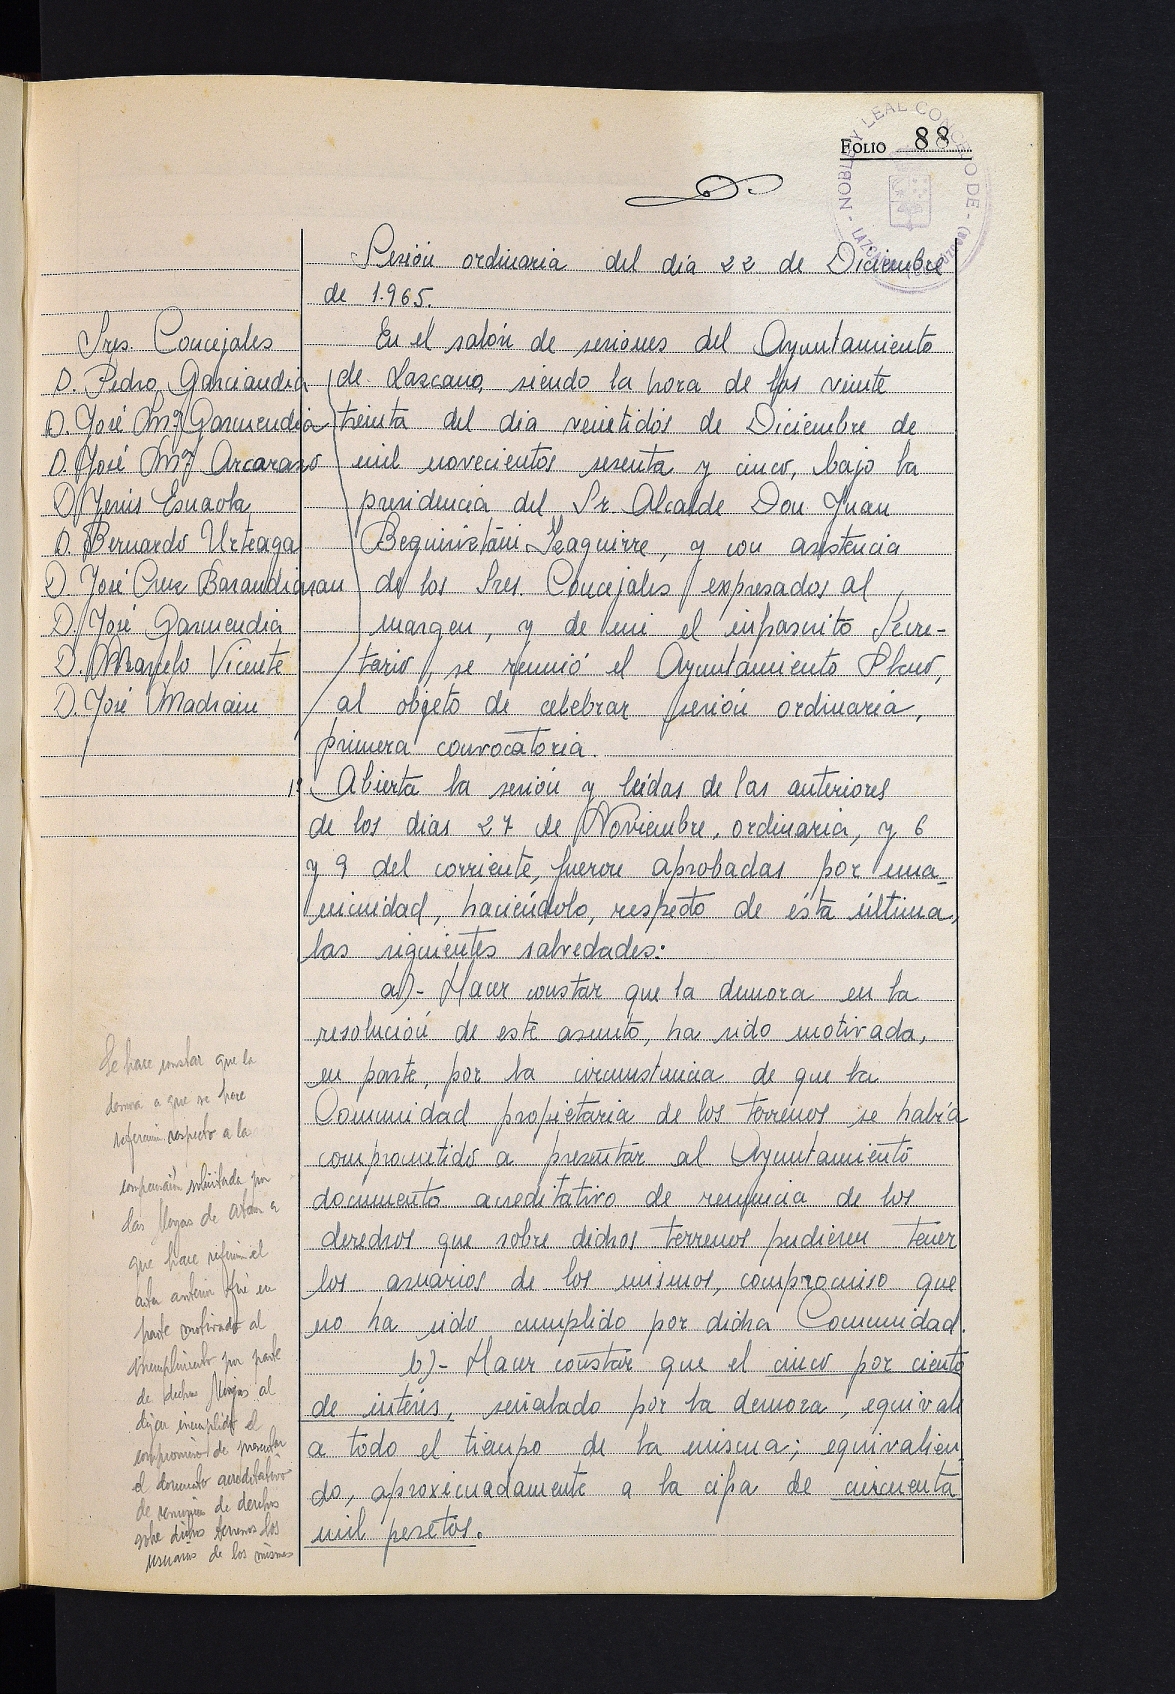 FOLIO 88
NOBLE Y LEAL CONCEJO DE
Sesión ordinaria del día 22 de Diciembre
de 1.965.
Sres. Concejales
D. Pedro Garciandia
D. José Mª Garmendia
D. José Mª Arcarazo
D. Jesús Esnaola
D. Bernardo Urteaga
D. José Cruz Barandiaran
D. José Garmendia
D. Marcelo Vicente
D. José Madrain
En el salón de sesiones del Ayuntamiento
de Lazcano, siendo la hora de las veinte
treinta del día veintidós de Diciembre de
mil novecientos sesenta y cinco, bajo la
presidencia del Sr. Alcalde Don Juan
Beguiristáin Izaguirre, y con asistencia
de los Sres. Concejales expresados al
margen, y de mi el infrascrito Secre-
tario, se reunió el Ayuntamiento Pleno,
al objeto de celebrar sesión ordinaria,
primera convocatoria.
1º Abierta la sesión y leídas de las anteriores
de los días 27 de Noviembre, ordinaria, y 6
y 9 del corriente, fueron aprobadas por una-
nimidad, haciéndolo, respecto de ésta última,
las siguientes salvedades:
a)- Hacer constar que la demora en la
resolución de este asunto, ha sido motivada,
en parte, por la circunstancia de que la
Comunidad propietaria de los terrenos se había
comprometido a presentar al Ayuntamiento
documento acreditativo de renuncia de los
derechos que sobre dichos terrenos pudieren tener
los usuarios de los mismos, compromiso que
no ha sido cumplido por dicha Comunidad.
b)- Hacer constar que el cinco por ciento
de interés, señalado por la demora, equivale
a todo el tiempo de la misma; equivalien
do, aproximadamente a la cifra de cincuenta
mil pesetas.
Se hace constar que la
demora a que se hace
referencia respecto a la
compensación solicitada por
las Monjas de a
que hace referencia el
acta anterior fué en
parte motivado al
incumplimiento por parte
de dichas Monjas al
dejar incumplido el
compromiso de presentar
el documento acreditativo
de renuncia de derechos
sobre dichos terrenos los
usuarios de los mismos